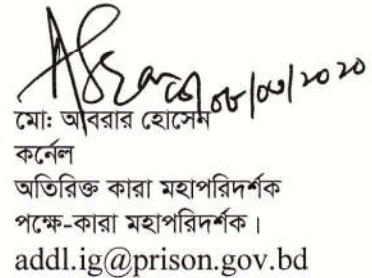 ০৮/০৩/২০২০
মোঃ আবরার হোসেন
কর্নেল
অতিরিক্ত কারা মহাপরিদর্শক
পক্ষে-কারা মহাপরিদর্শক।
addl.ig@prison.gov.bd